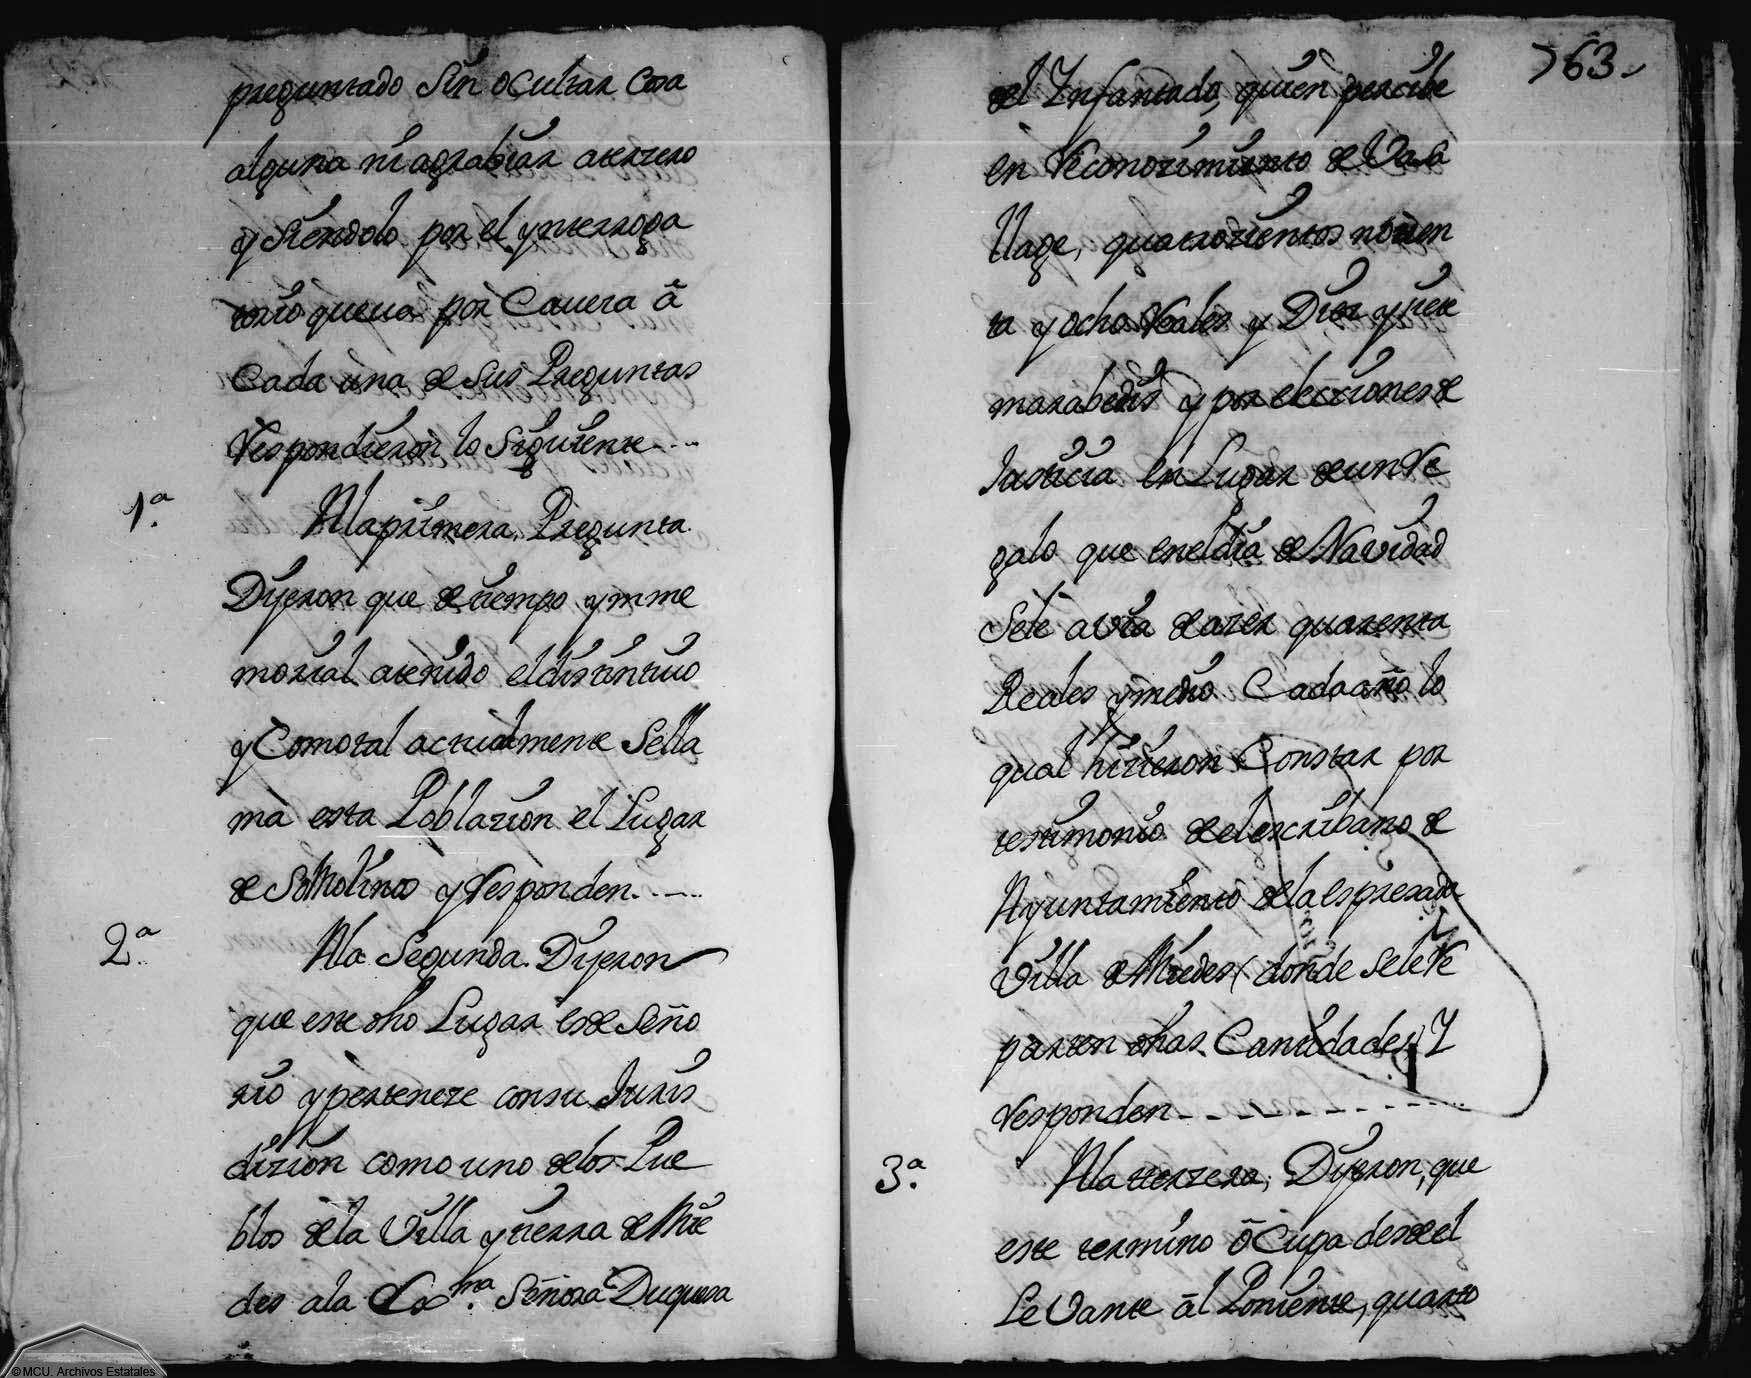 preguntado Sin ocultar Cosa
alguna ni agrabiar aterzero
y Siendolo por el ynterroga
torio queva por Cavera â
Cada una de Sus Preguntas
Respondieron lo Siguiente
1.ª
Alaprimera Pregunta
Dijeron que de tiempo ynme
morial atenido eldistintivo
y Comotal actualmente Sella
ma esta Poblazion el Lugar
de Somolinos y Responden.
2.ª
Ala Segunda. Dijeron
que este dho Lugar es de Seño
rio y perteneze consu Juris
dizion como uno delos Pue
blos dela Villa y tierra de Mie
des ala Exma. Señora Duquesa
763
del Infantado, quien percibe
en Reconozimiento de Vasa
llage, quatrozientos noven
ta y ocho Reales y Diez y siete
marabedis y por elecciones de
Justicia en Lugar de un Re
galo que eneldia de Navidad
Sele avia de azer quarenta
Reales y medio Cada año lo
qual hizieron Constar por
testimonio de el escribano de
Ayuntamiento dela espresada
Villa de Miedes (donde Sele Re
parten dhas Cantidades) Y
Responden
3.ª
Ala terzera, Dijeron, que
este termino ôCupa desde el
LeVante âl Poniente, quarto